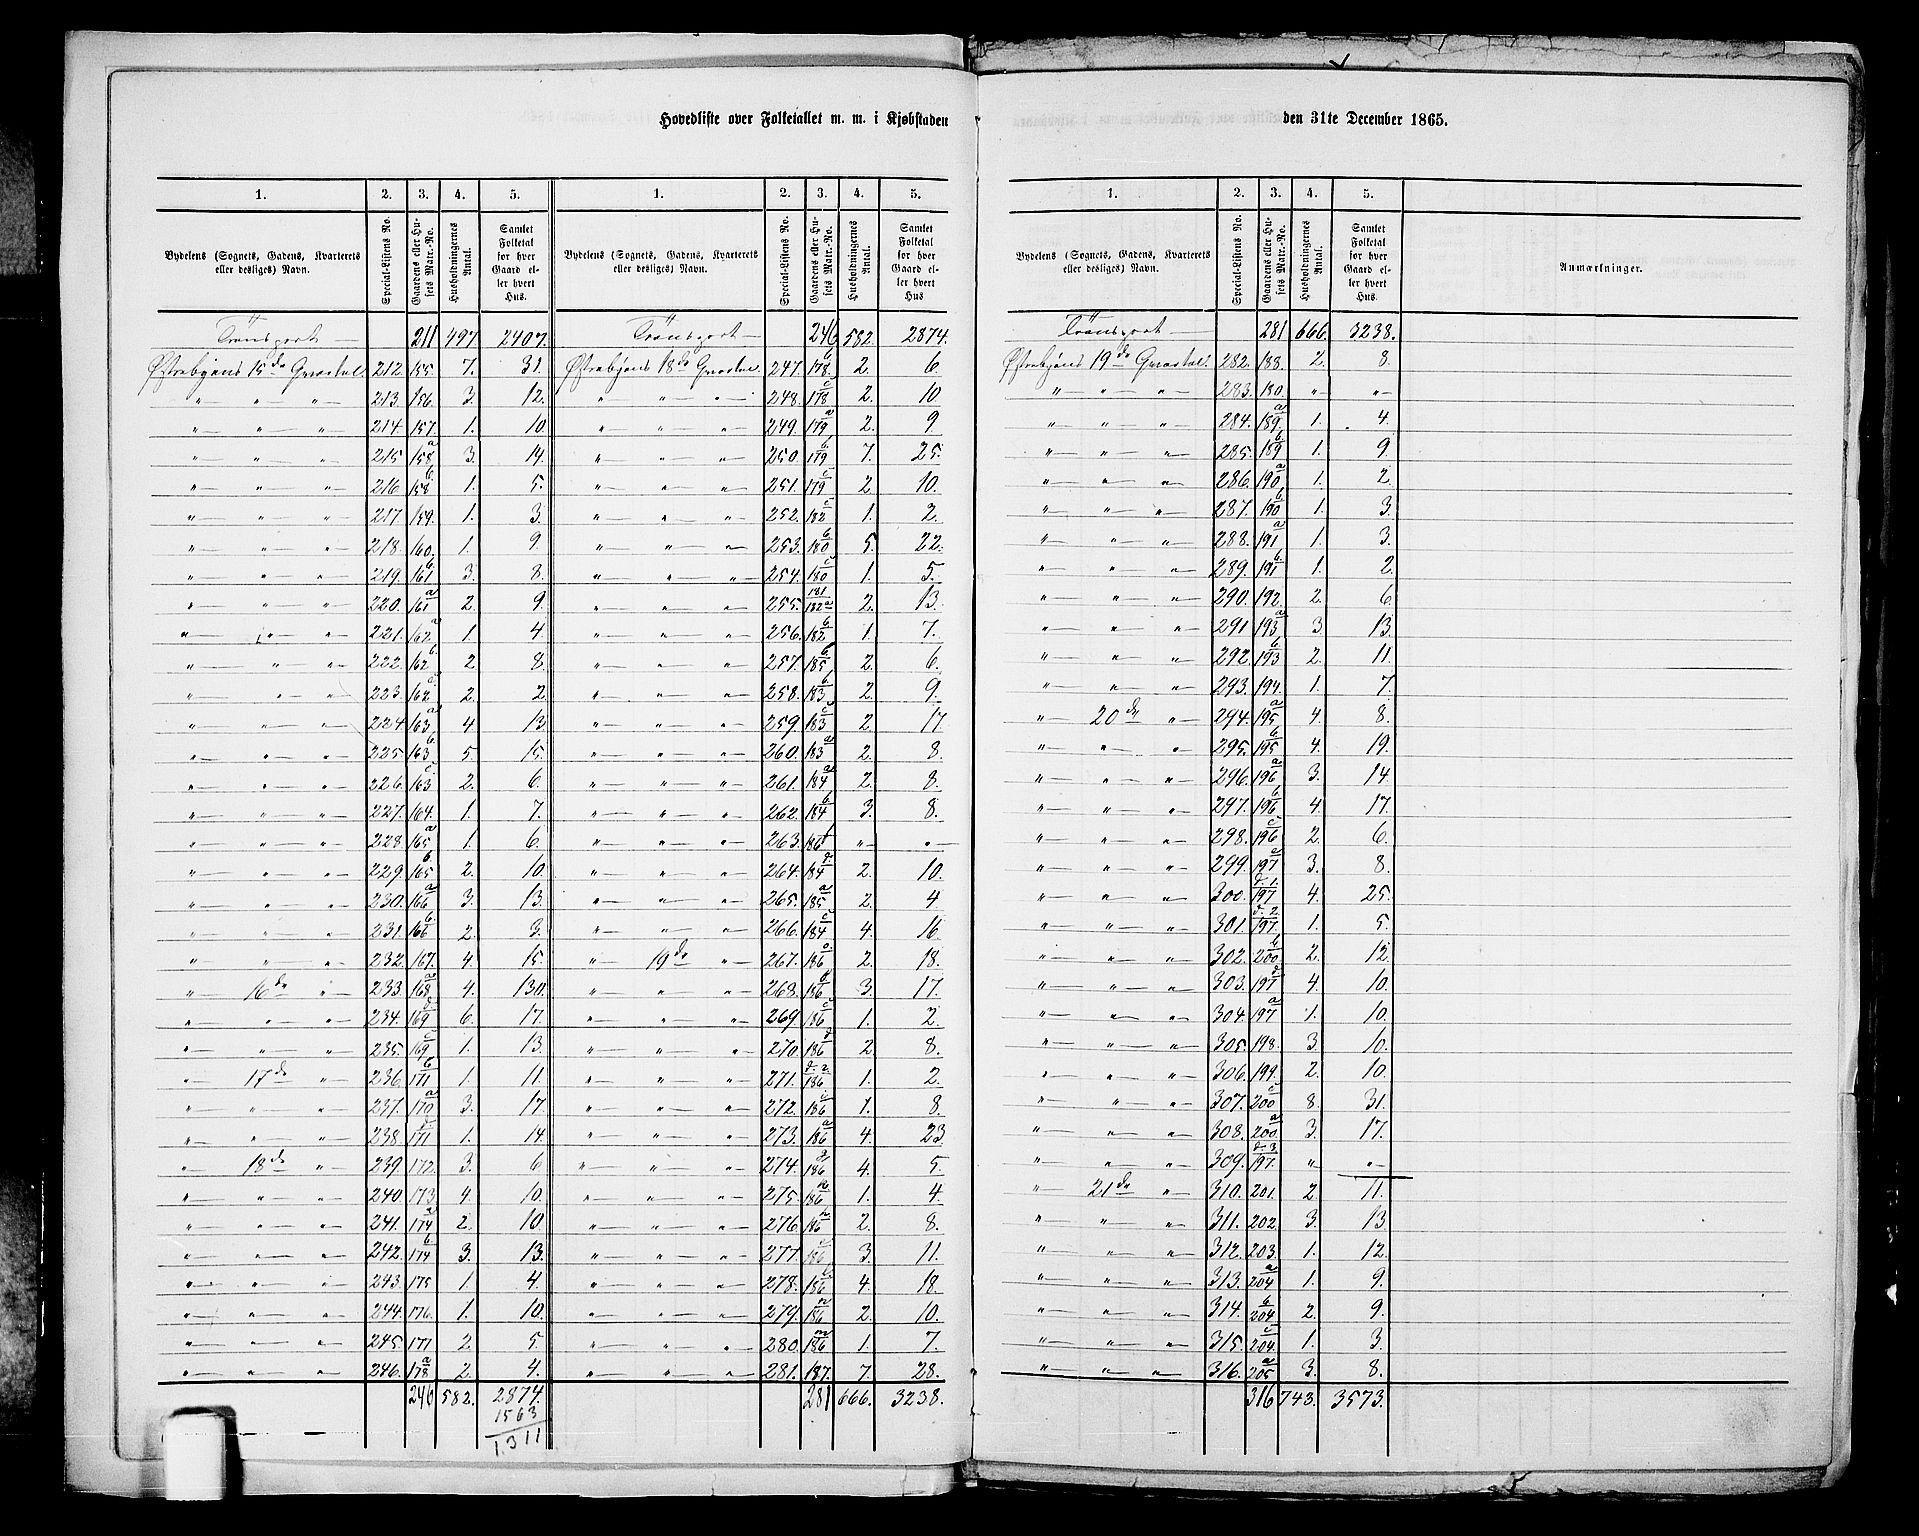 Hovedliste over Folketallet m. m. i Kjøbstaden
1. 2. 3. 4. 5. 1. 2. 3. 4. 5.
Bydelens (Sognets, Gadens, Kvarterets eller desliges) Navn. Special-Listens No. Gaardens eller Husets Matr.-No. Husholdningernes Antal. Samlet Folketal for hver Gaard eller hvert Hus
Bydelens (Sognets, Gadens, Kvarterets eller desliges) Navn. Special-Listens No. Gaardens eller Husets Matr.-No. Husholdningernes Antal. Samlet Folketal for hver Gaard eller hvert Hus
Transport — 211 497 2407. Transport — 246 582. 2874.
Østrebyens 15de Qvartal 212. 155. 7. 31. Østrebyens 18de Qvartal 247. 178. b 2. 6.
" " " 213. 156. 3. 12. " " " 248. 178 c 2. 10
" " " 214. 157. 1. 10 " " " 249. 179 a 2. 9
" " " 215 158. a 3. 14. " " " 250. 179 b 7. 25.
" " " 216. 158 b 1. 5. " " " 251. 179 c 2 10.
" " " 217. 159. 1. 3. " " " 252. 182 c 1. 2.
" " " 218. 160. 1. 9. " " " 253. 180 b 5. 22.
" " " 219. 161 b 3. 8. " " " 254. 180 c 1. 5.
" " " 220. 161 a 2. 9. " " " 255. 181 182 a 2. 13.
" " " 221. 162 a 1. 4 " " " 256. 182 b 1. 7.
" " " 222. 162 b 2 8. " " " 257. 185 b 2. 6.
" " " 223. 162 c 2. 2. " " " 258. 183 b 2. 9.
" " " 224 163 a 4 13. " " " 259. 183 c 2. 17.
" " " 225. 163 b 5 15. " " " 260. 183 a 2. 8.
" " " 226. 163 c 2. 6. " " " 261. 184 a 2. 8.
" " " 227. 164. 1. 7. " " " 262. 184 b 3. 8.
" " " 228. 165 a 1. 6. " " " 263. 186 " "
" " " 229. 165 b 2. 10. " " " 264. 184 d 2. 10.
" " " 230. 166 a 3. 13. " " " 265. 185 a 2. 4
" " " 231. 166 b 2. 3. " " " 266. 184 c 4. 16
" " " 232. 167. 4. 15. " 19de " 267. 186 2. 18.
" 16de " 233. 168 a 4. 130. " " " 268. 186 3. 17.
" " " 234. 169 d 6. 17. " " " 269. 186 c 1. 2.
" " " 235. 169 c 1. 13. " " " 270. 186 d 2 8.
" 17de " 236. 171 b 1. 11. " " " 271. 186. d. 2. 1. 2.
" " " 237. 170 a 3. 17. " " " 272. 186 1. 8.
" " " 238. 171 d 1. 14. " " " 273. 186 a 4. 23.
" 18de " 239. 172. 3. 6 " " " 274. 186 4. 5.
" " " 240. 173. 4. 10. " " " 275. 186 1. 4.
" " " 241. 174 a 2. 10 " " " 276. 186 2. 8.
" " " 242. 174 b 3. 13. " " " 277. 186 3. 11.
" " " 243. 175 1 4. " " " 278. 186 4. 18.
" " " 244. 176. 1. 10. " " " 279. 186 2. 10.
" " " 245. 177 2. 5. " " " 280. 186 m 1. 7.
" " " 246. 178 a 2. 4. " " " 281. 187. 7. 28.
246 582. 2874. 281 666. 3238.
1563
1311
den 31te December 1865.
1. 2. 3. 4. 5.
Bydelens (Sognets, Gadens, Kvarterets eller desliges) Navn. Special-Listens No. Gaardens eller Husets Matr.-No. Husholdningernes Antal. Samlet Folketal for hver Gaard eller hvert Hus. Anmærkninger.
Transport — 281 666. 3238.
Østrebyens 19de Qvartal. 282. 188. 2. 8.
" " " 283. 180. " "
" " " 284. 189. a 1. 4.
" " " 285. 189 b 1. 9.
" " " 286. 190 a 1. 2
" " " 287. 190 b 1. 3.
" " " 288. 191 a 1. 3.
" " " 289. 191 b 1. 2.
" " " 290. 192. 2. 6
" " " 291. 193 a 3. 13.
" " " 292. 193 b 2. 11.
" " " 293. 194. 1. 7.
" 20de " 294. 195 a 4. 8.
" " " 295. 195 b 4. 19.
" " " 296. 196 a 3. 14.
" " " 297. 196 b 4. 17.
" " " 298. 196 c 2. 6.
" " " 299. 197 3. 8.
" " " 300. 197 d. 1. 4. 25.
" " " 301. 197. d. 2. 1. 5.
" " " 302. 200. b 2. 12.
" " " 303. 197 4. 10.
" " " 304. 197 a 1. 10.
" " " 305. 198. 3. 10.
" " " 306. 199. 2. 10.
" " " 307. 200 c 8. 31.
" " " 308. 200. a 3. 17.
" " " 309. 197. d. 3 " "
" 21de " 310. 201. 2. 11.
" " " 311. 202. 3. 13.
" " " 312. 203. 1. 12.
" " " 313. 204. a 1. 9.
" " " 314. 204. b 2. 9.
" " " 315. 204. c 1. 3.
" " " 316. 205. a 3. 8.
316 743. 3573.